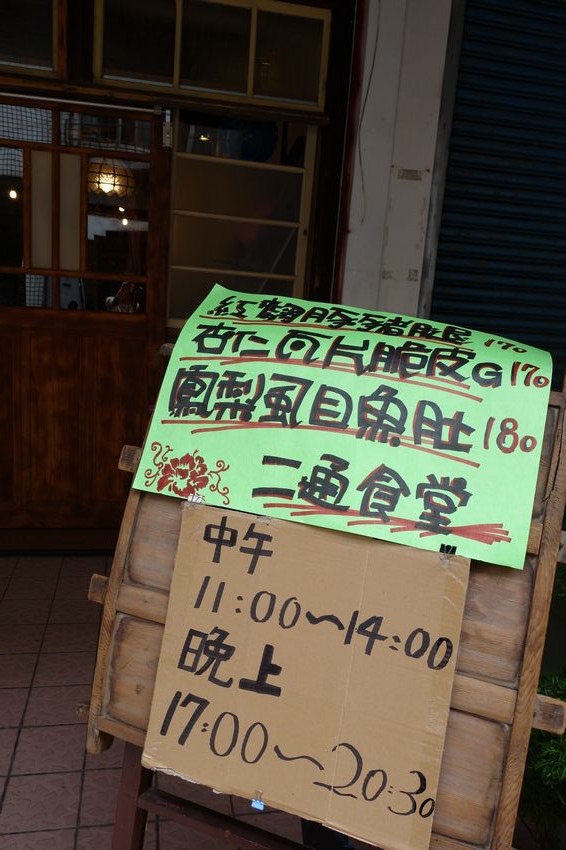 紅麴豚豬腳 170
杏仁瓦片脆皮G 170
鳳梨虱目魚肚 180
二通食堂
中午
11:00~14:00
晚上
17:00~20:30